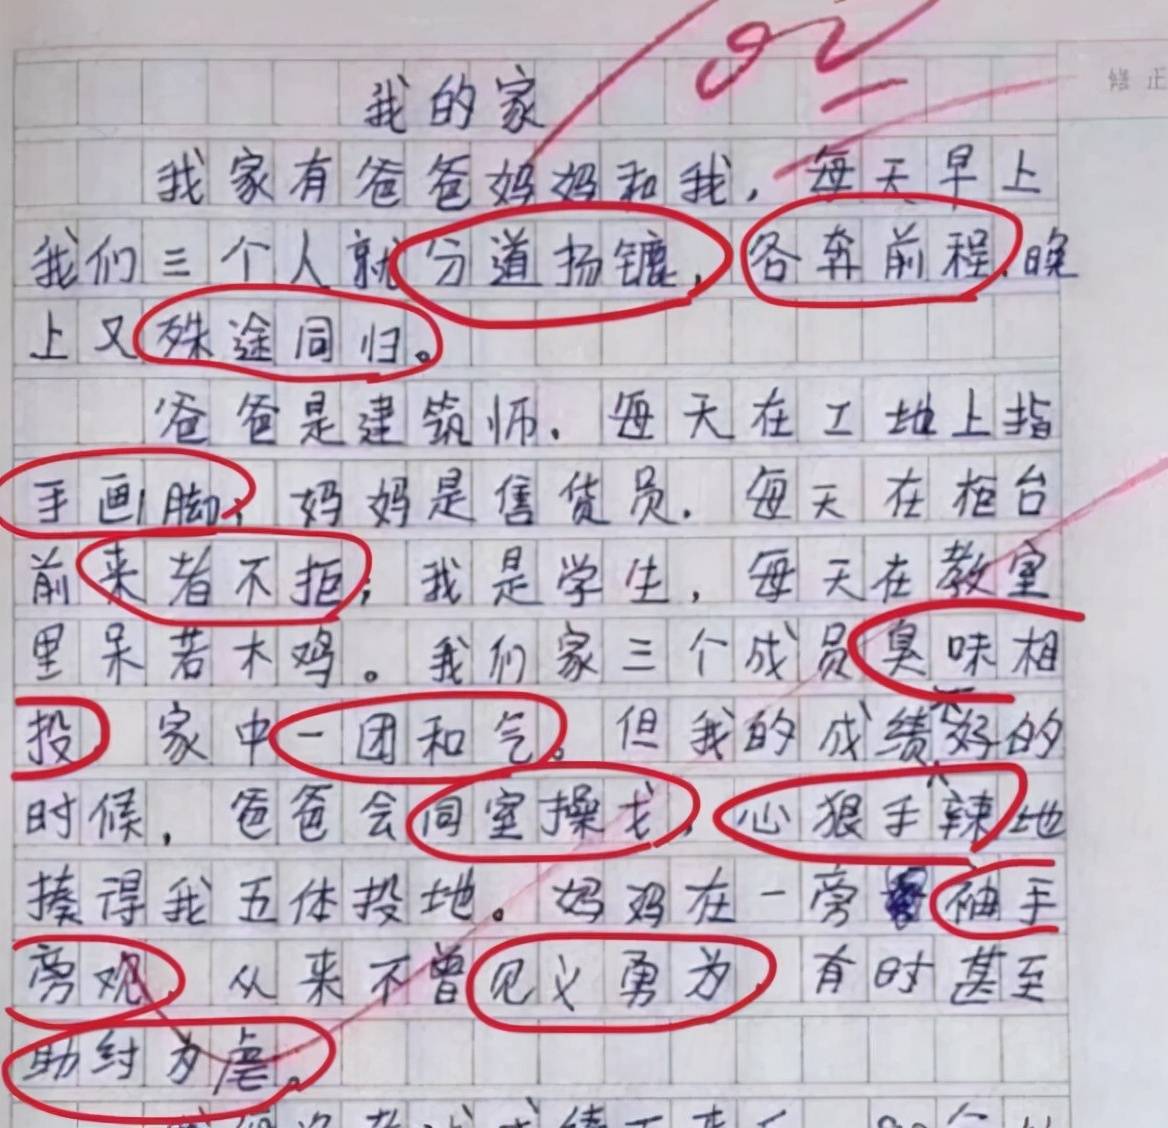 92
修正
我的家
我家有爸爸妈妈和我，每天早上
我们三个人就分道扬镳，各奔前程，晚
上又殊途同归。
爸爸是建筑师，每天在工地上指
手画脚；妈妈是售货员，每天在柜台
前来者不拒；我是学生，每天在教室
里呆若木鸡。我们家三个成员臭味相
投，家中一团和气。但我的成绩好的
时候，爸爸会同室操戈，心狠手辣地
揍得我五体投地。妈妈在一旁袖手
旁观，从来不曾见义勇为，有时甚至
助纣为虐。